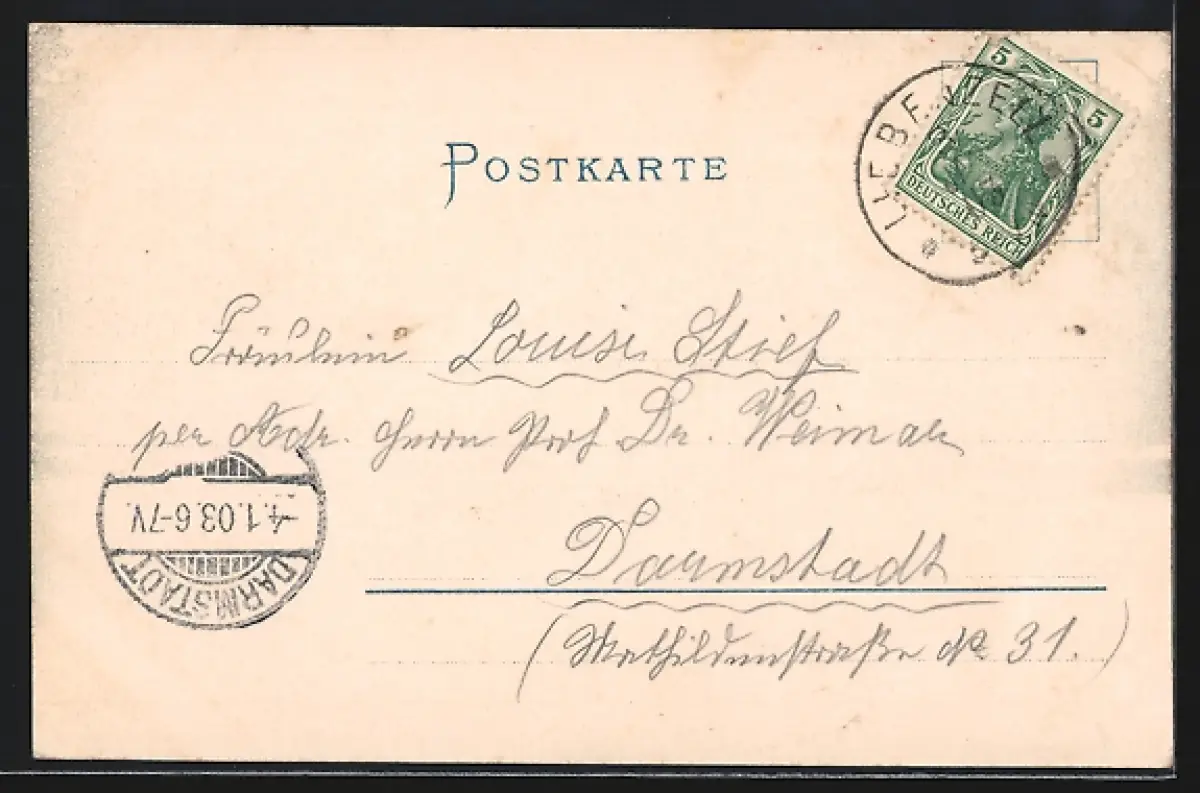 POSTKARTE
5 5
DEUTSCHES REICH
LIEBENZELL
Fräulein Louise Stief
per Adr. Herrn Prof Dr. Weimar
Darmstadt
(Mathildenstraße No 31.)
4.1.03.6-7V.
DARMSTADT